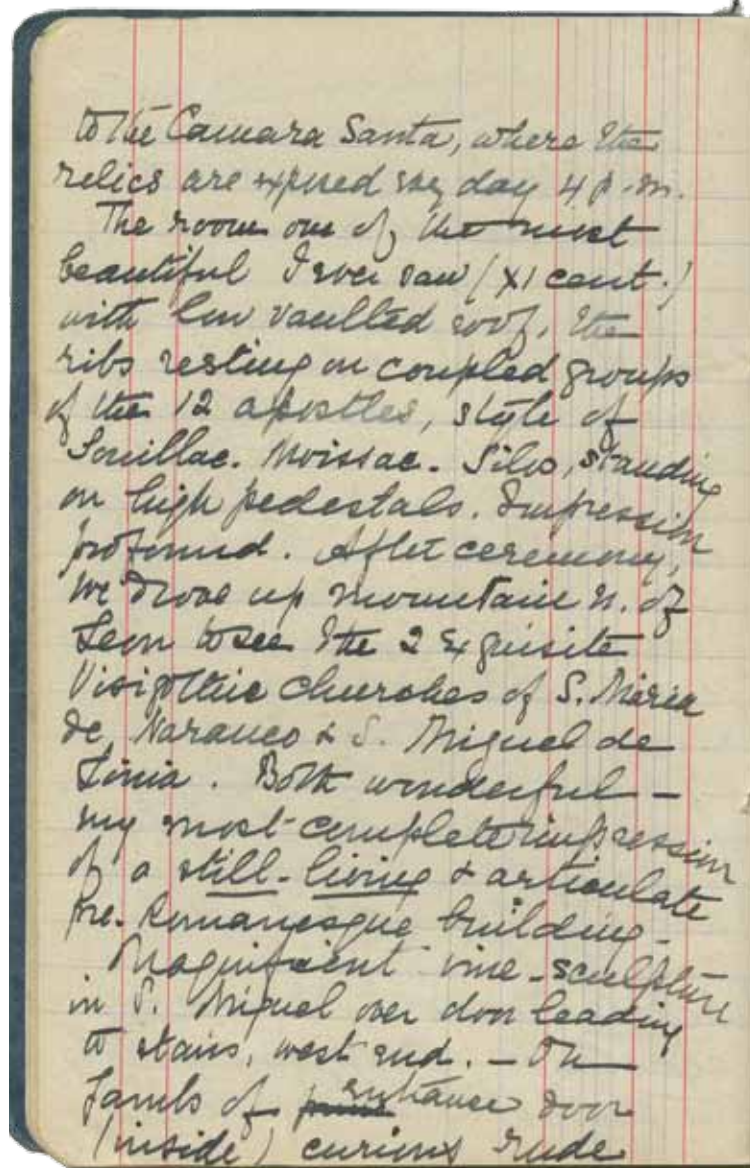 to the Camara Santa, where the
relics are exposed every day 4 p.m.
The room one of the most
beautiful I ever saw (XI cent.)
with low vaulted roof, the
ribs resting on coupled groups
of the 12 apostles, style of
Souillac. Moissac. Silos, standing
on high pedestals. Impression
profound. After ceremony,
we drove up mountain n. of
Leon to see the 2 exquisite
Visigothic churches of S. Maria
de Naranco & S. Miguel de
Linia. Both wonderful –
my most complete impression
of a still-living & articulate
pre-Romanesque building.
Magnificent vine-sculpture
in S. Miguel over door leading
to stairs, west end. – On
jambs of entrance door
(inside) curious rude